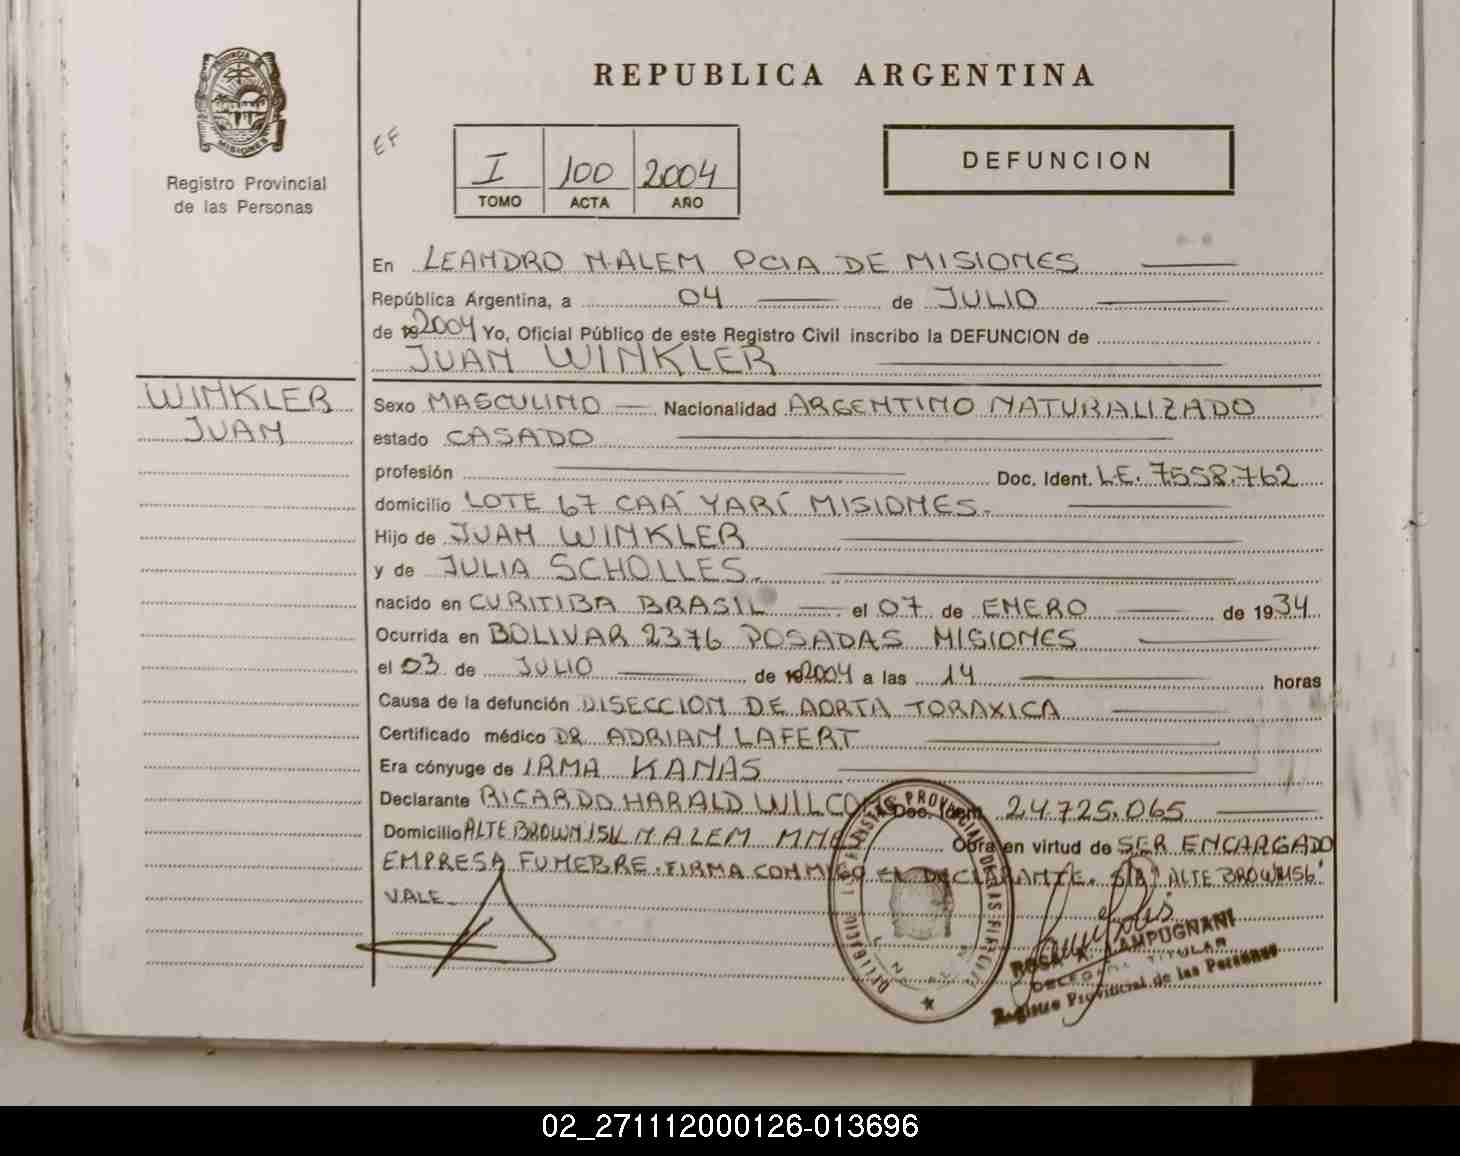 REPUBLICA ARGENTINA
PROVINCIA DE
MISIONES
Registro Provincial
de las Personas
EF
I 100 2004
TOMO ACTA AÑO
DEFUNCION
En LEANDRO N. ALEM PCIA DE MISIONES
República Argentina, a 04 de JULIO
de 19 2004 Yo, Oficial Público de este Registro Civil inscribo la DEFUNCION de
JUAN WINKLER
WINKLER
JUAN
Sexo MASCULINO Nacionalidad ARGENTINO NATURALIZADO
estado CASADO
profesión Doc. Ident. L.E. 7558.762
domicilio LOTE 67 CAÁ YARÍ MISIONES.
Hijo de JUAN WINKLER
y de JULIA SCHOLLES.
nacido en CURITIBA BRASIL el 07 de ENERO de 1934
Ocurrida en BOLIVAR 2376 POSADAS MISIONES
el 03 de JULIO de 19 2004 a las 14 horas
Causa de la defunción DISECCION DE AORTA TORAXICA
Certificado médico DR ADRIAN LAFERT
Era cónyuge de IRMA KANAS
Declarante RICARDO HARALD WILCO Doc. Ident. 24.725.065
Domicilio ALTE BROWN 156 N ALEM MNES Obra en virtud de SER ENCARGADO
EMPRESA FUNEBRE. FIRMA CONMIGO EL DECLARANTE. S/R) "ALTE BROWN 156"
VALE.
ROSA A. LAMPUGNANI
DELEGADA TITULAR
Registro Provincial de las Personas
02_271112000126-013696